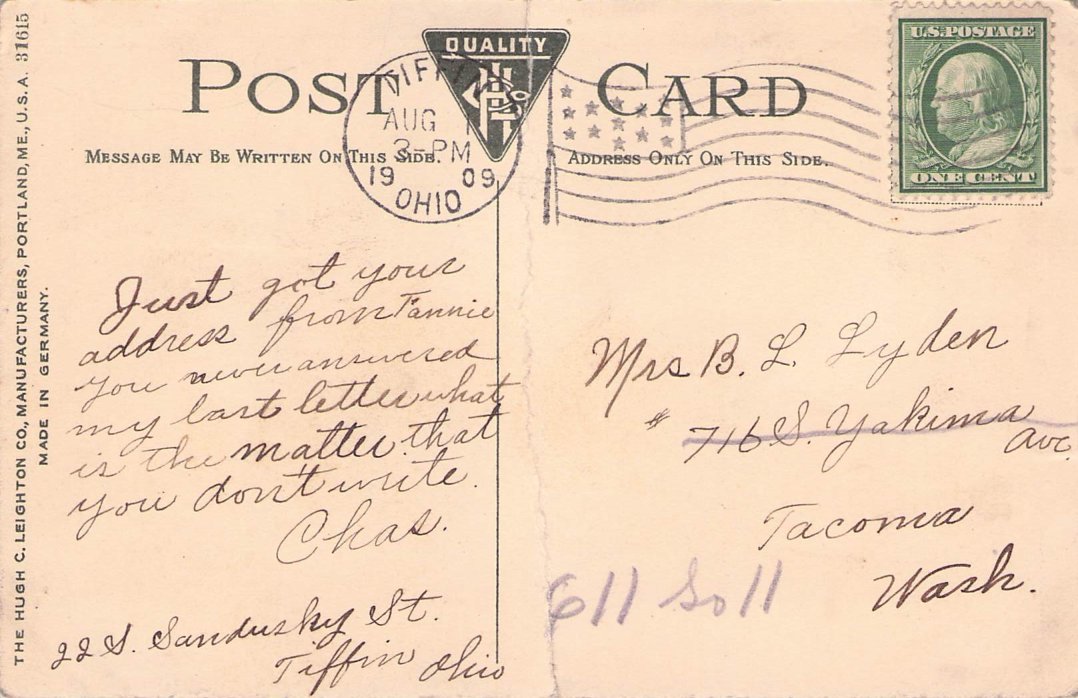 THE HUGH C. LEIGHTON CO., MANUFACTURERS, PORTLAND, ME., U.S.A. 31615
MADE IN GERMANY.
POST CARD
QUALITY
U.S. POSTAGE
ONE CENT
TIFFIN
AUG 1
3-PM
1909
OHIO
MESSAGE MAY BE WRITTEN ON THIS SIDE.
ADDRESS ONLY ON THIS SIDE.
Just got your
address from Fannie
you never answered
my last letter what
is the matter that
you don't write.
Chas.
22 S. Sandusky St.
Tiffin Ohio
Mrs B. L Lyden
# 716 S. Yakima
Ave.
Tacoma
Wash.
611 So 11